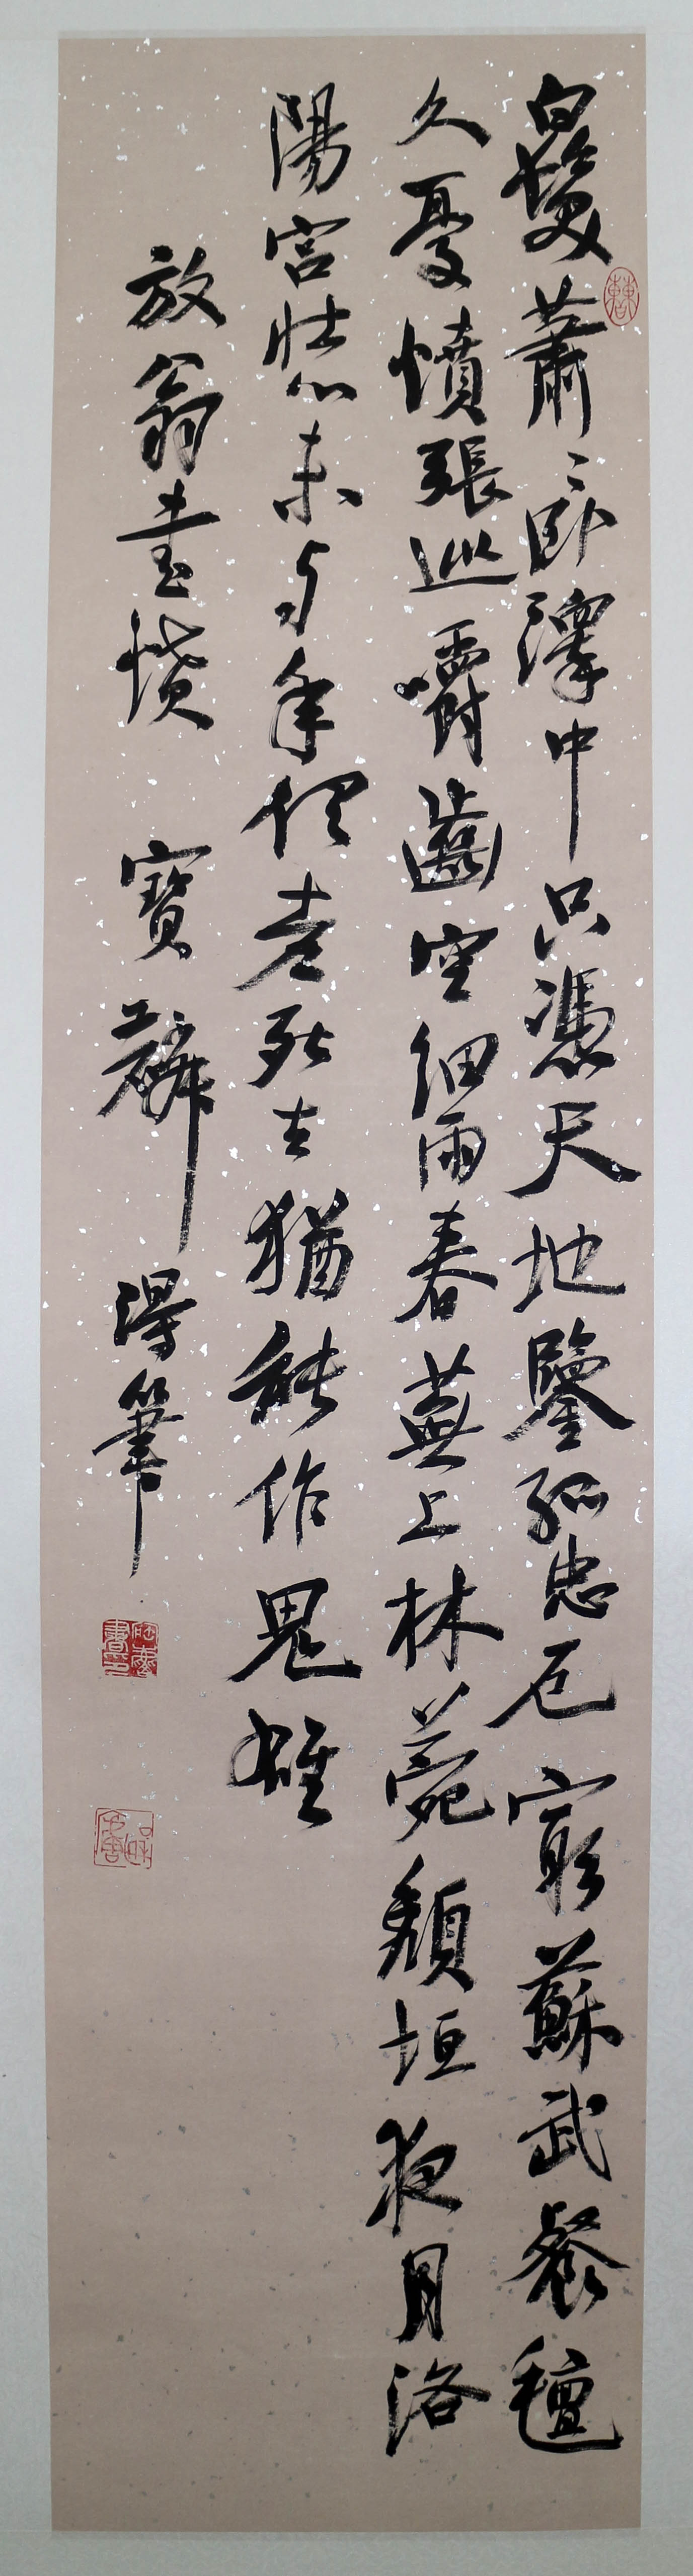 白髮蕭〻卧澤中只憑天地鑒孤忠厄窮蘇武餐氈
久憂憤張巡嚼齒空細雨春蕪上林菀頹垣夜月洛
陽宮壯心未与年俱老死去猶能作鬼雄
放翁書憤 寶 得筆